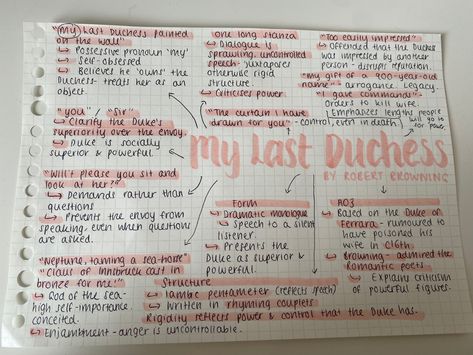 "(My) Last Duchess painted
on the wall"
↳ Possessive pronoun 'my'
↳ Self-obsessed
↳ Believes he 'owns' the
Duchess- treats her as an
object.
"you" / "Sir"
↳ Clarify the Duke's
superiority over the envoy.
↳ Duke is socially
superior & powerful.
"Will't please you sit and
look at her?"
↳ Demands rather than
questions
↳ Prevents the envoy from
speaking, even when questions
are asked.
"Neptune, taming a sea-horse"
"Claus of Innsbruck cast in
bronze for me!"
↳ God of the sea-
high self-importance.
conceited.
↳ Enjambment - anger is uncontrollable.
One long stanza
↳ Dialogue is
sprawling, uncontrolled
speech- juxtaposes
otherwise rigid
structure.
↳ Criticises power.
"Too easily impressed"
↳ Offended that the Duchess
was impressed by another
person - disrupts reputation.
"My gift of a 900-year-old
name" - arrogance. Legacy.
"I gave commands" -
Orders to kill wife.
Emphasizes lengths people
will go to for power.
"The curtain I have
drawn for you" - control, even in death
My Last Duchess
BY ROBERT BROWNING
Form
↳ Dramatic monologue
↳ Speech to a silent
listener.
↳ Presents the
Duke as superior &
powerful.
AO3
↳ Based on the Duke of
Ferrara - rumoured to
have poisoned his
wife in C16th.
↳ Browning - admired the
Romantic poets.
↳ Explains criticism
of powerful figures.
Structure
↳ Iambic pentameter (reflects speech)
↳ Written in rhyming couplets
Rigidity reflects power & control that the Duke has.